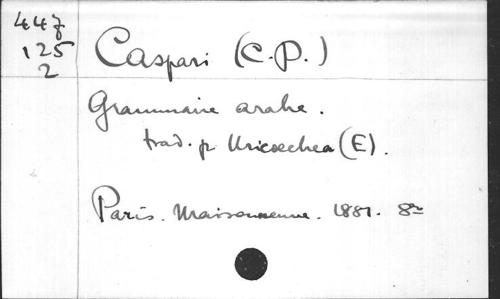 447
125
2
Caspari (C.P.)
Grammaire arabe.
trad. p. Uricoechea (E).
Paris. Maisonneuve. 1881. 8º